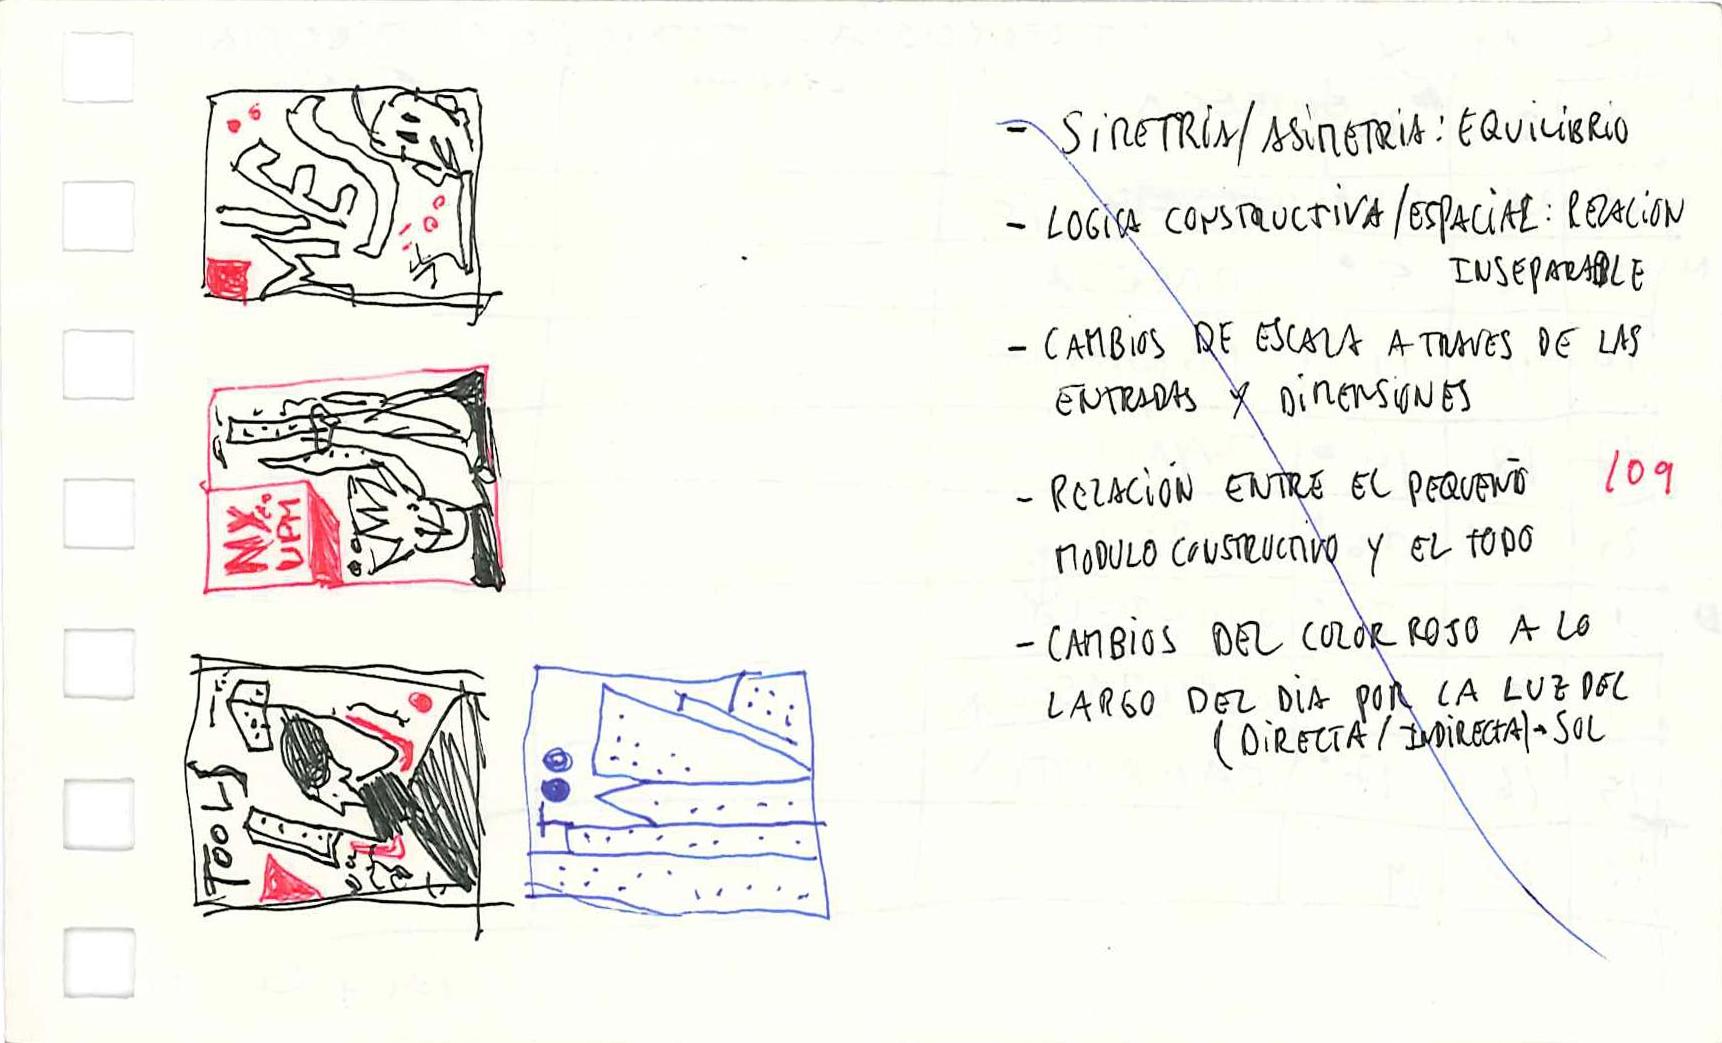 - SIMETRIA/ASIMETRIA: EQUILIBRIO
- LOGICA CONSTRUCTIVA/ESPACIAL: RELACION
INSEPARABLE
- CAMBIOS DE ESCALA A TRAVES DE LAS
ENTRADAS Y DIMENSIONES
- RELACIÓN ENTRE EL PEQUEÑO
MODULO CONSTRUCTIVO Y EL TODO
109
- CAMBIOS DEL COLOR ROJO A LO
LARGO DEL DIA POR LA LUZ DEL
(DIRECTA/INDIRECTA)→SOL
MY
UPM
TOOLS